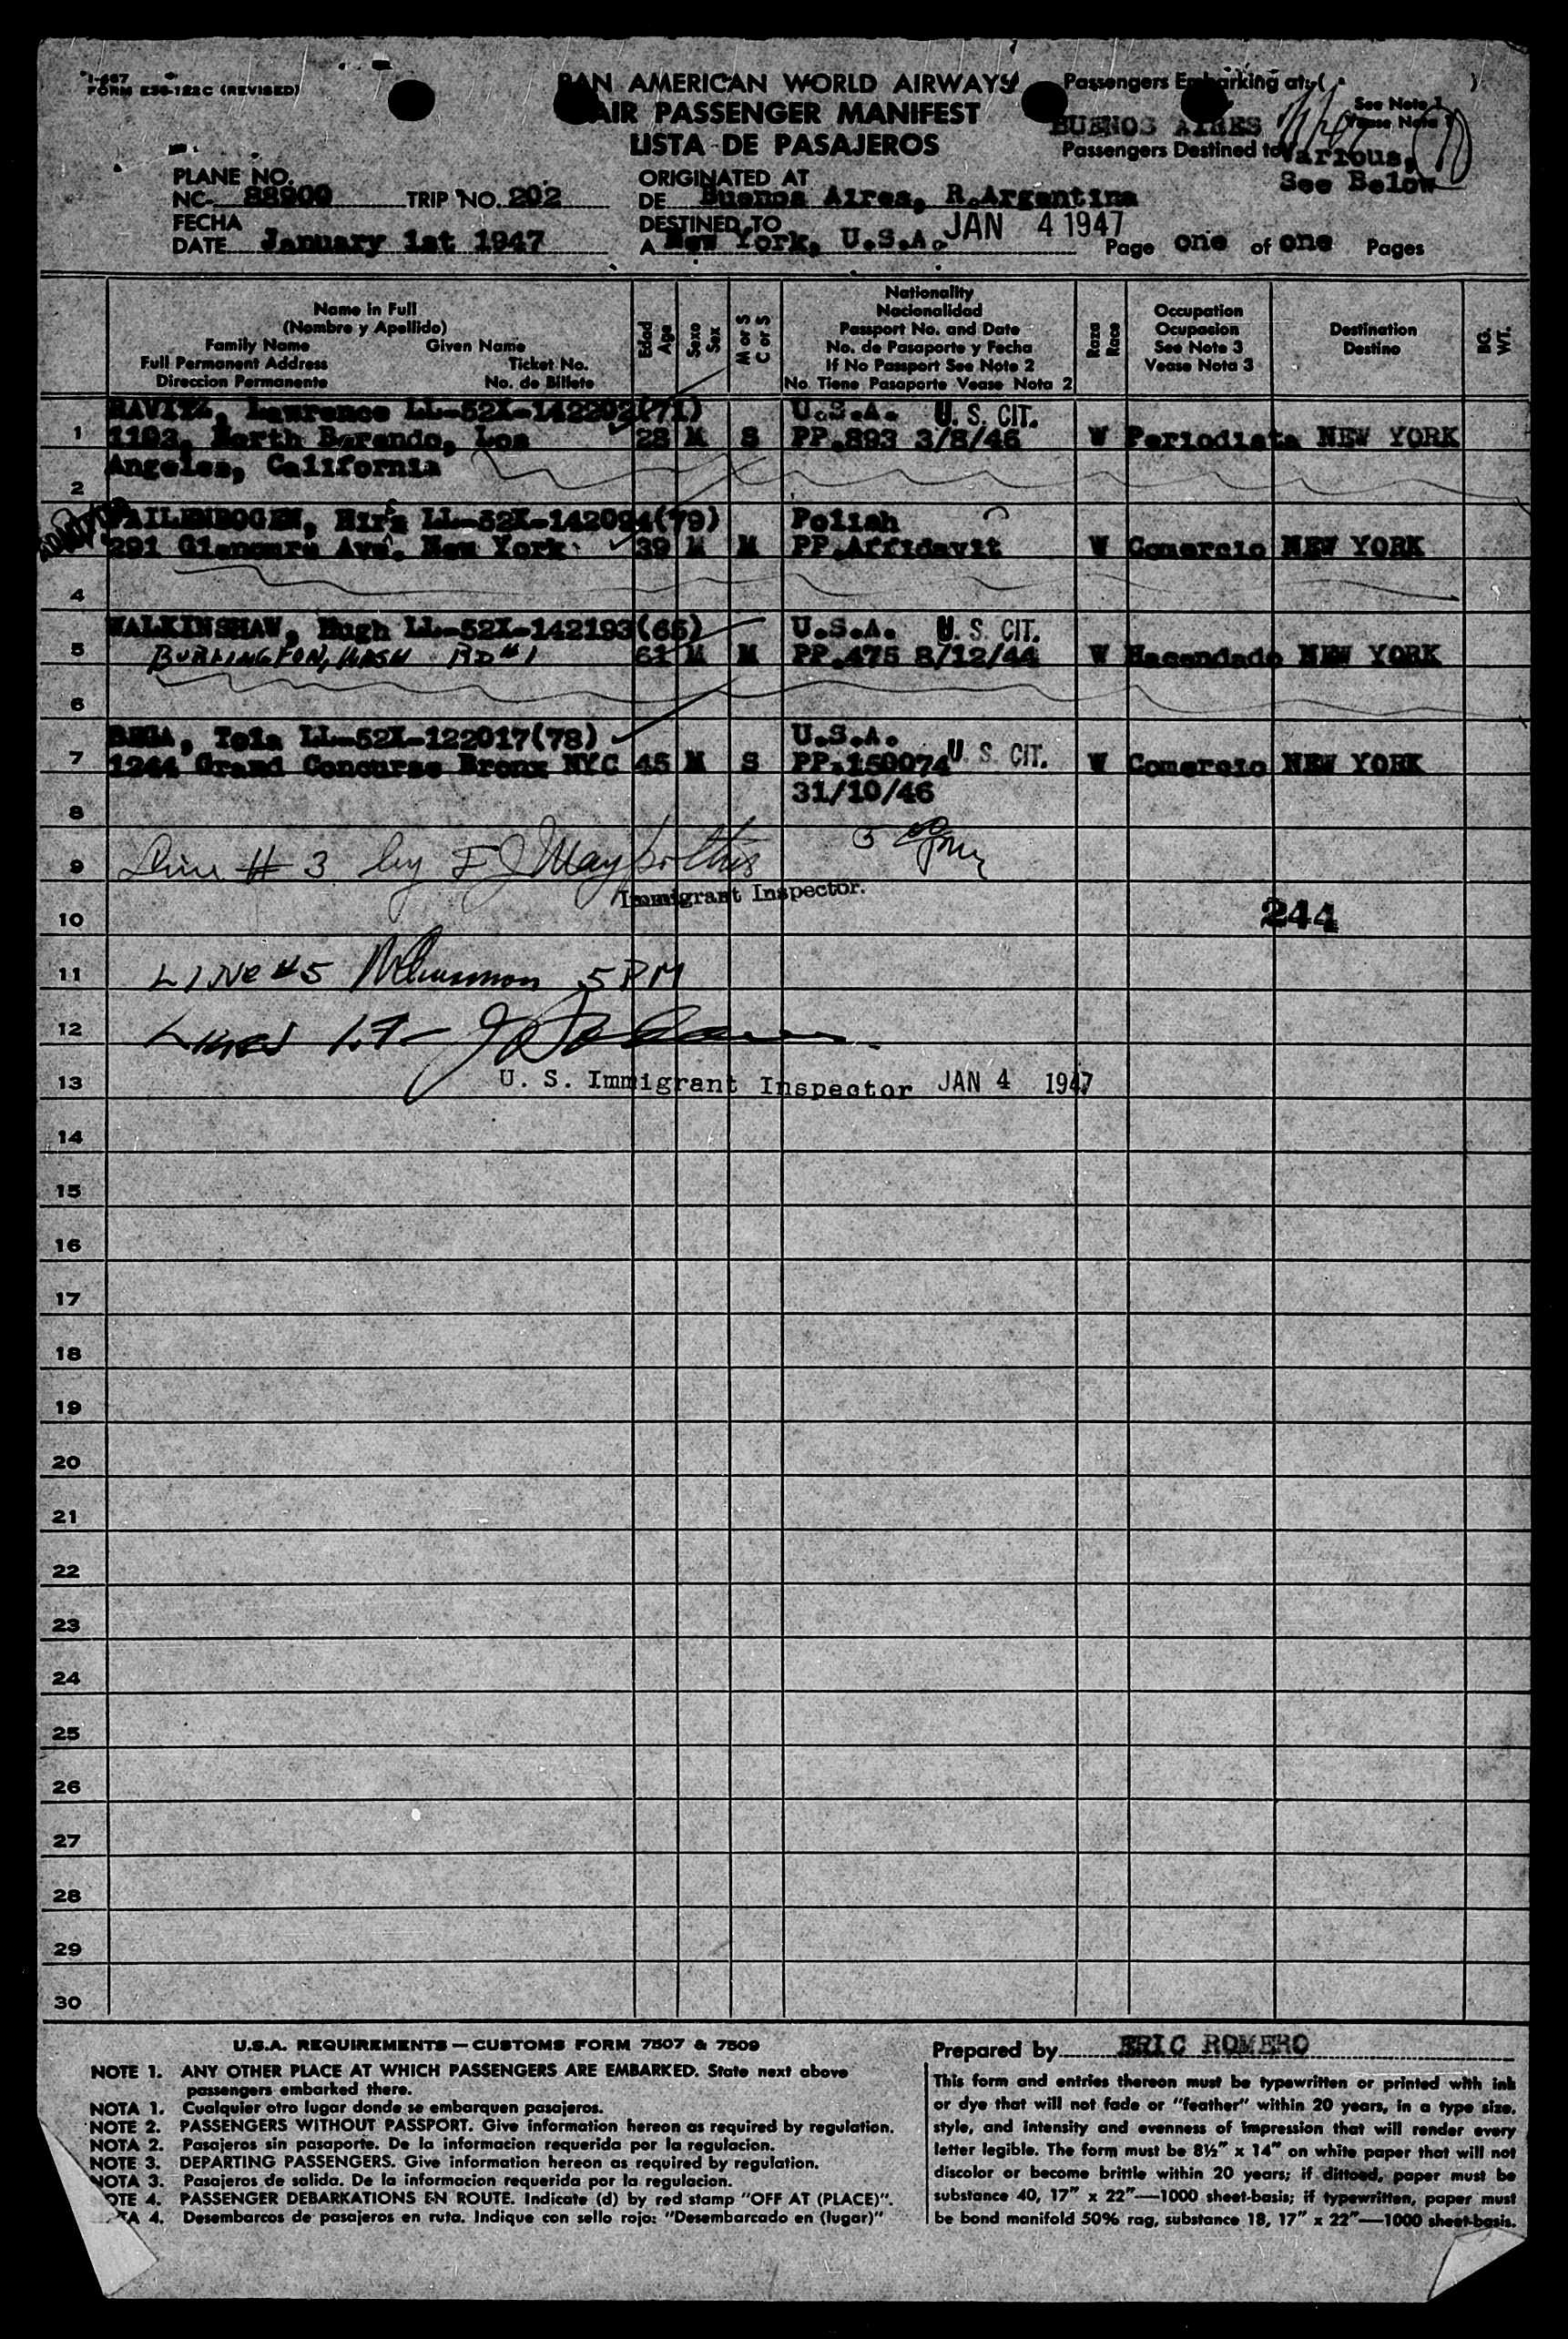 I-467
FORM 238-122C (REVISED)
PAN AMERICAN WORLD AIRWAYS
AIR PASSENGER MANIFEST
LISTA DE PASAJEROS
Passengers Embarking at:( )
See Note 1
Vease Nota 1
BUENOS AIRES
Passengers Destined to Various,
See Below
PLANE NO.
NC- 88900 TRIP NO. 202
ORIGINATED AT
DE Buenos Aires, R.Argentina
FECHA
DATE January 1st 1947
DESTINED TO
A New York, U.S.A. JAN 4 1947
Page one of one Pages
Name in Full
(Nombre y Apellido)
Family Name Given Name
Full Permanent Address Ticket No.
Direccion Permanente No. de Billete
Edad
Age
Sexo
Sex
M or S
C or S
Nationality
Nacionalidad
Passport No. and Date
No. de Pasaporte y Fecha
If No Passport See Note 2
No Tiene Pasaporte Vease Nota 2
Raza
Race
Occupation
Ocupacion
See Note 3
Vease Nota 3
Destination
Destino
BG.
WT.
RAVITZ, Lawrence LL-52X-142202(71) U.S.A. U. S. CIT.
1 1193, North Berendo, Los 28 M S PP.893 3/8/46 W Periodista NEW YORK
Angeles, California
2
FAILENBOGEN, Hirs LL-52X-142094(79) Polish
291 Glenmore Ave. New York 39 M M PP.Affidavit W Comercio NEW YORK
4
WALKINSHAW, Hugh LL-52X-142193(65) U.S.A. U. S. CIT.
5 BURLINGTON, WASH RD #1 61 M M PP.475 8/12/44 W Hacendado NEW YORK
6
BEGA, Tola LL-52X-122017(78) U.S.A.
7 1244 Grand Concurse Bronx NYC 45 M S PP.150074 U. S. CIT. W Comercio NEW YORK
31/10/46
8
9 Line # 3 by
Immigrant Inspector.
10 244
11 LINE #5 5 PM
12 Lines 1.7-
13 U. S. Immigrant Inspector JAN 4 1947
14
15
16
17
18
19
20
21
22
23
24
25
26
27
28
29
30
U.S.A. REQUIREMENTS — CUSTOMS FORM 7507 & 7509
NOTE 1. ANY OTHER PLACE AT WHICH PASSENGERS ARE EMBARKED. State next above
passengers embarked there.
NOTA 1. Cualquier otro lugar donde se embarquen pasajeros.
NOTE 2. PASSENGERS WITHOUT PASSPORT. Give information hereon as required by regulation.
NOTA 2. Pasajeros sin pasaporte. De la informacion requerida por la regulacion.
NOTE 3. DEPARTING PASSENGERS. Give information hereon as required by regulation.
NOTA 3. Pasajeros de salida. De la informacion requerida por la regulacion.
OTE 4. PASSENGER DEBARKATIONS EN ROUTE. Indicate (d) by red stamp "OFF AT (PLACE)".
TA 4. Desembarcos de pasajeros en ruta. Indique con sello rojo: "Desembarcado en (lugar)"
Prepared by ERIC ROMERO
This form and entries thereon must be typewritten or printed with ink
or dye that will not fade or "feather" within 20 years, in a type size,
style, and intensity and evenness of impression that will render every
letter legible. The form must be 8½" x 14" on white paper that will not
discolor or become brittle within 20 years; if dittoed, paper must be
substance 40, 17" x 22"—1000 sheet-basis; if typewritten, paper must
be bond manifold 50% rag, substance 18, 17" x 22"—1000 sheet-basis.